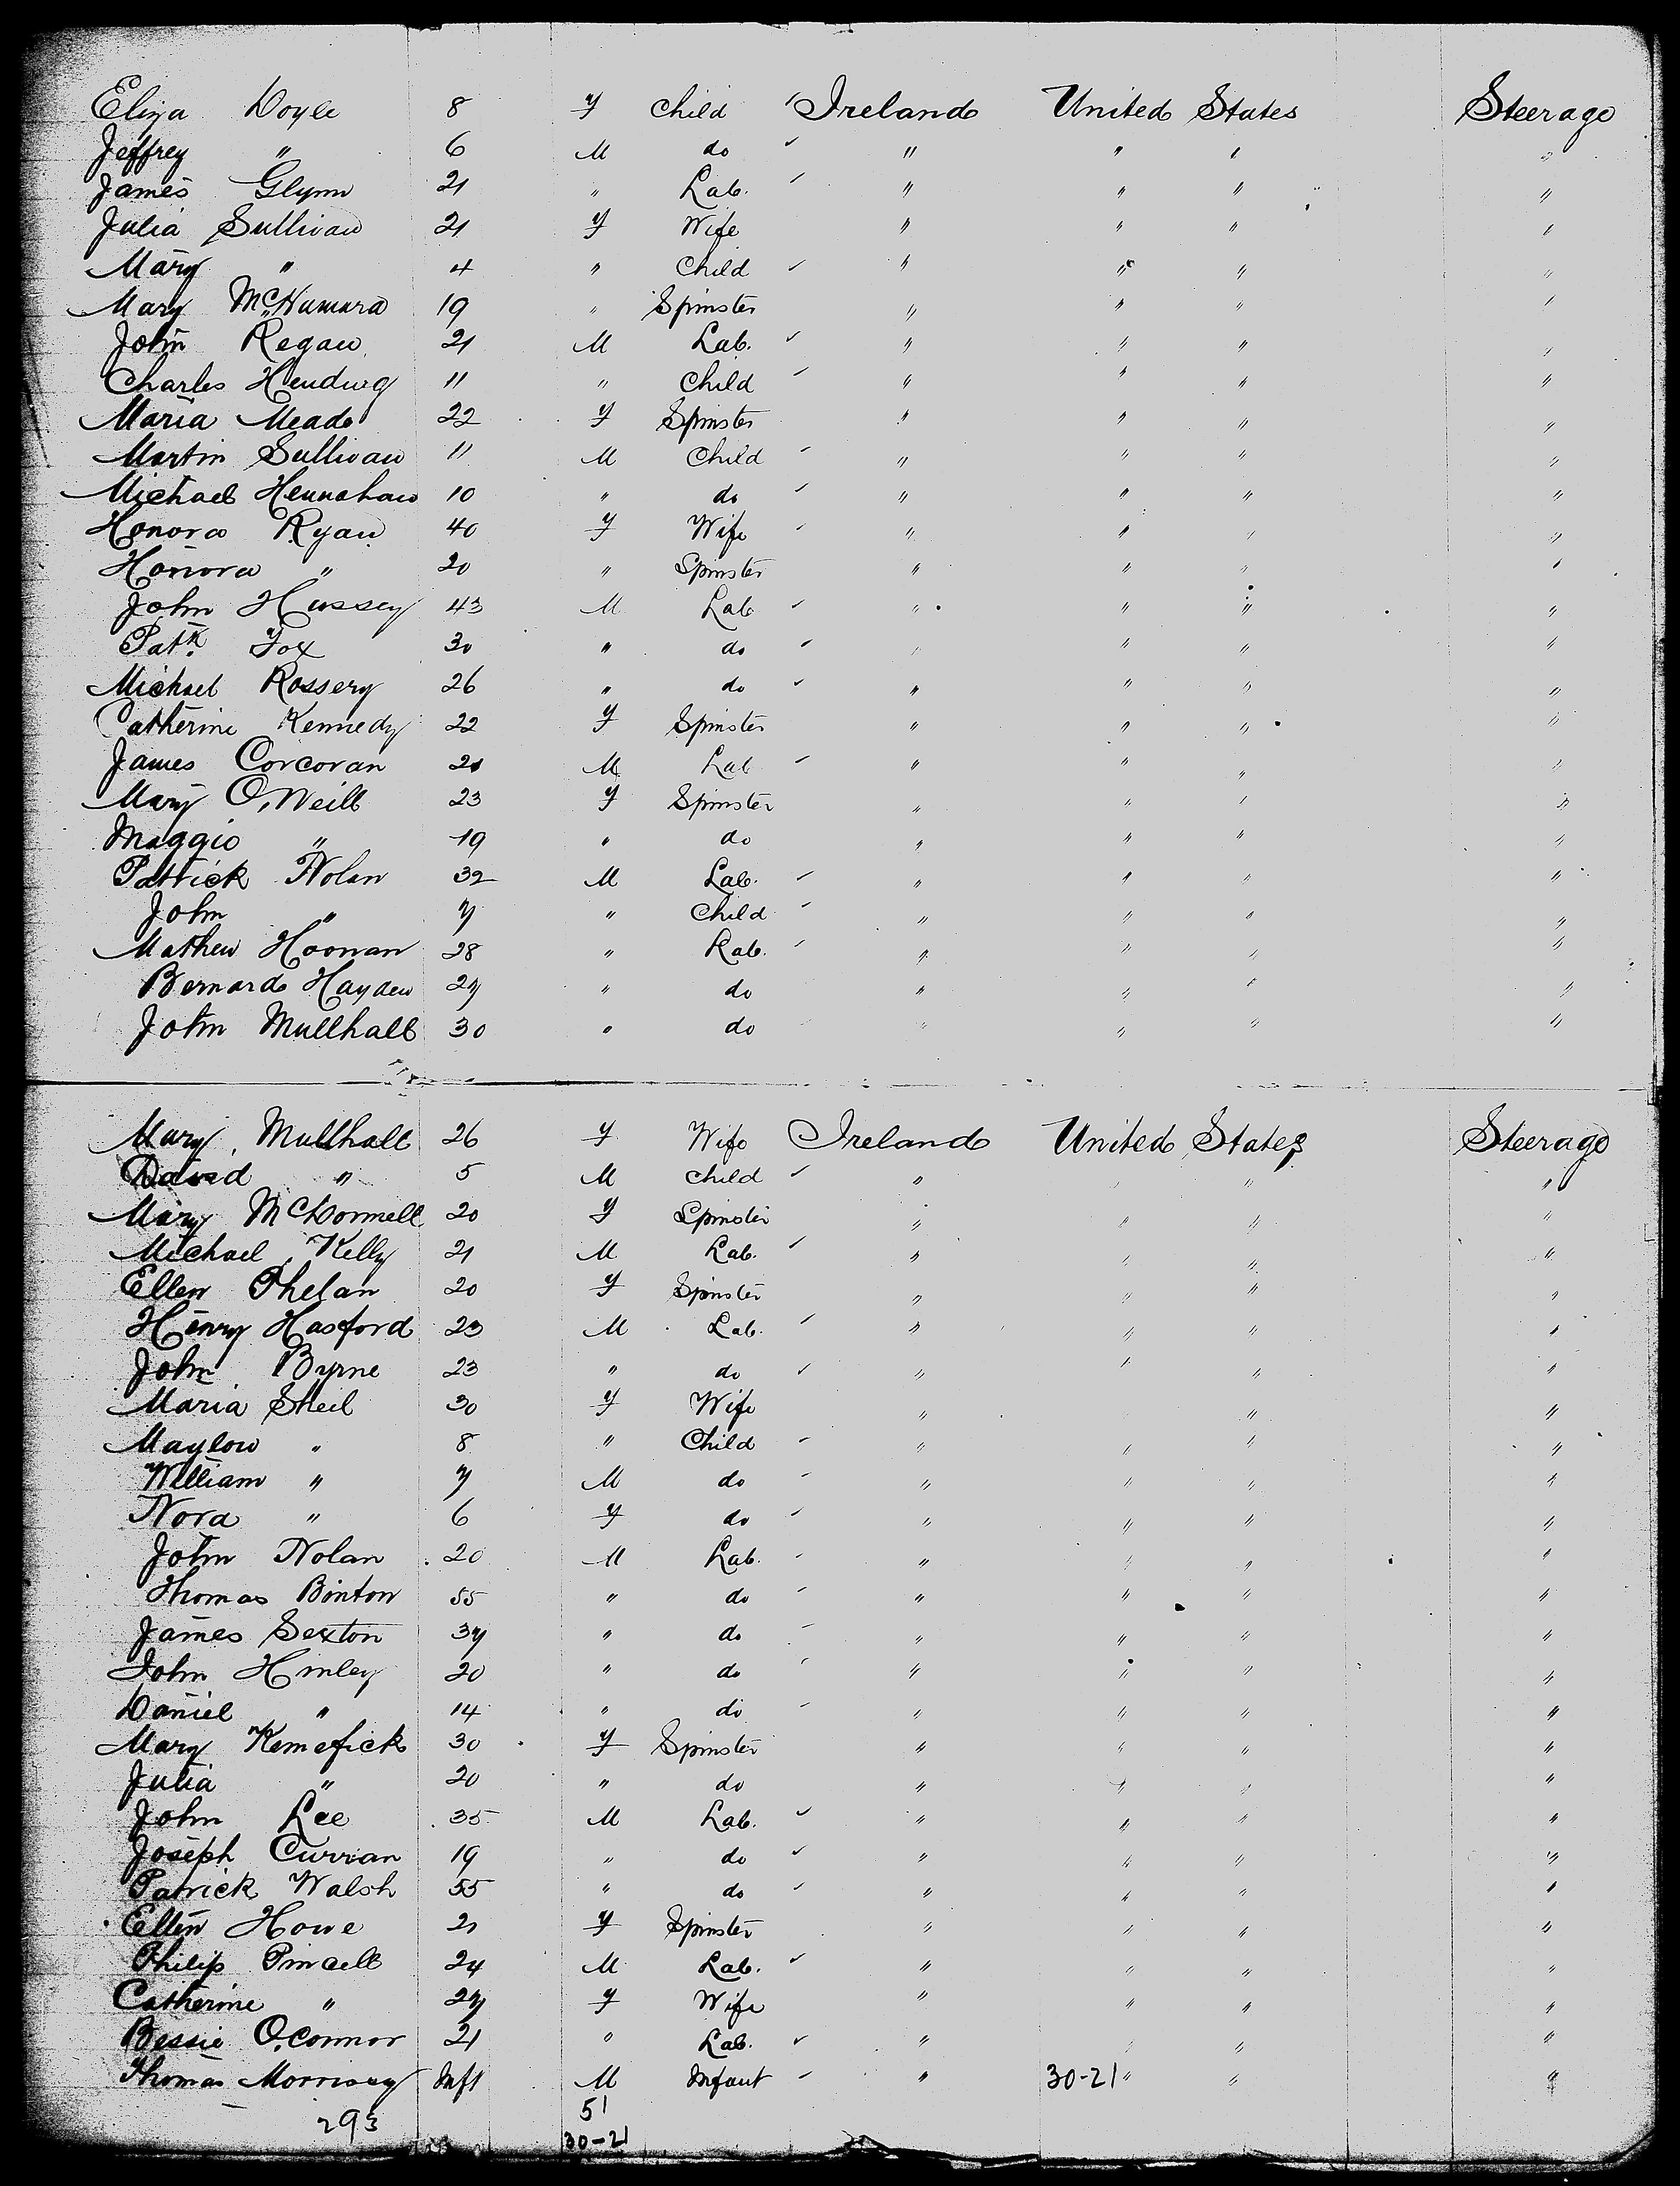 Eliza Doyle 8 F Child Ireland United States Steerage
Jeffrey " 6 M do " " " "
James Glynn 21 " Lab. " " " "
Julia Sullivan 21 F Wife " " " "
Mary " 4 " Child " " " "
Mary McNamara 19 " Spinster " " " "
John Regan 21 M Lab. " " " "
Charles 11 " Child " " " "
Maria Meade 22 F Spinster " " " "
Martin Sullivan 11 M Child " " " "
Michael 10 " do " " " "
Honora Ryan 40 F Wife " " " "
Honora " 20 " Spinster " " " "
John Hussey 43 M Lab " " " "
Patk. Fox 30 " do " " " "
Michael Rossery 26 " do " " " "
Catherine Kennedy 22 F Spinster " " " "
James Corcoran 20 M Lab " " " "
Mary O,Neill 23 F Spinster " " " "
Maggie " 19 " do " " " "
Patrick Nolan 32 M Lab. " " " "
John " 7 " Child " " " "
Mathew Hoonan 28 " Lab. " " " "
Bernard Hayden 27 " do " " " "
John Mullhall 30 " do " " " "
Mary Mullhall 26 F Wife Ireland United States Steerage
David " 5 M Child " " " "
Mary McDonnell 20 F Spinster " " " "
Michael Kelly 21 M Lab. " " " "
Ellen Phelan 20 F Spinster " " " "
Henry Hasford 23 M Lab. " " " "
John Byrne 23 " do " " " "
Maria Sheil 30 F Wife " " "
Maylow " 8 " Child " " " "
William " 7 M do " " " "
Nora " 6 F do " " " "
John Nolan 20 M Lab. " " " "
Thomas Binton 55 " do " " " "
James Sexton 37 " do " " " "
John Hinley 20 " do " " " "
Daniel " 14 " do " " " "
Mary Kenefick 30 F Spinster " " " "
Julia " 20 " do " " " "
John Lee 35 M Lab. " " " "
Joseph Curran 19 " do " " " "
Patrick Walsh 55 " do " " " "
Ellen Howe 21 F Spinster " " " "
Philip Pincell 24 M Lab. " " " "
Catherine " 27 F Wife " " " "
Bessie O,Connor 21 " Lab. " " " "
Thomas Morrisey Inft M Infant " 30-21 " " "
293 51
30-21